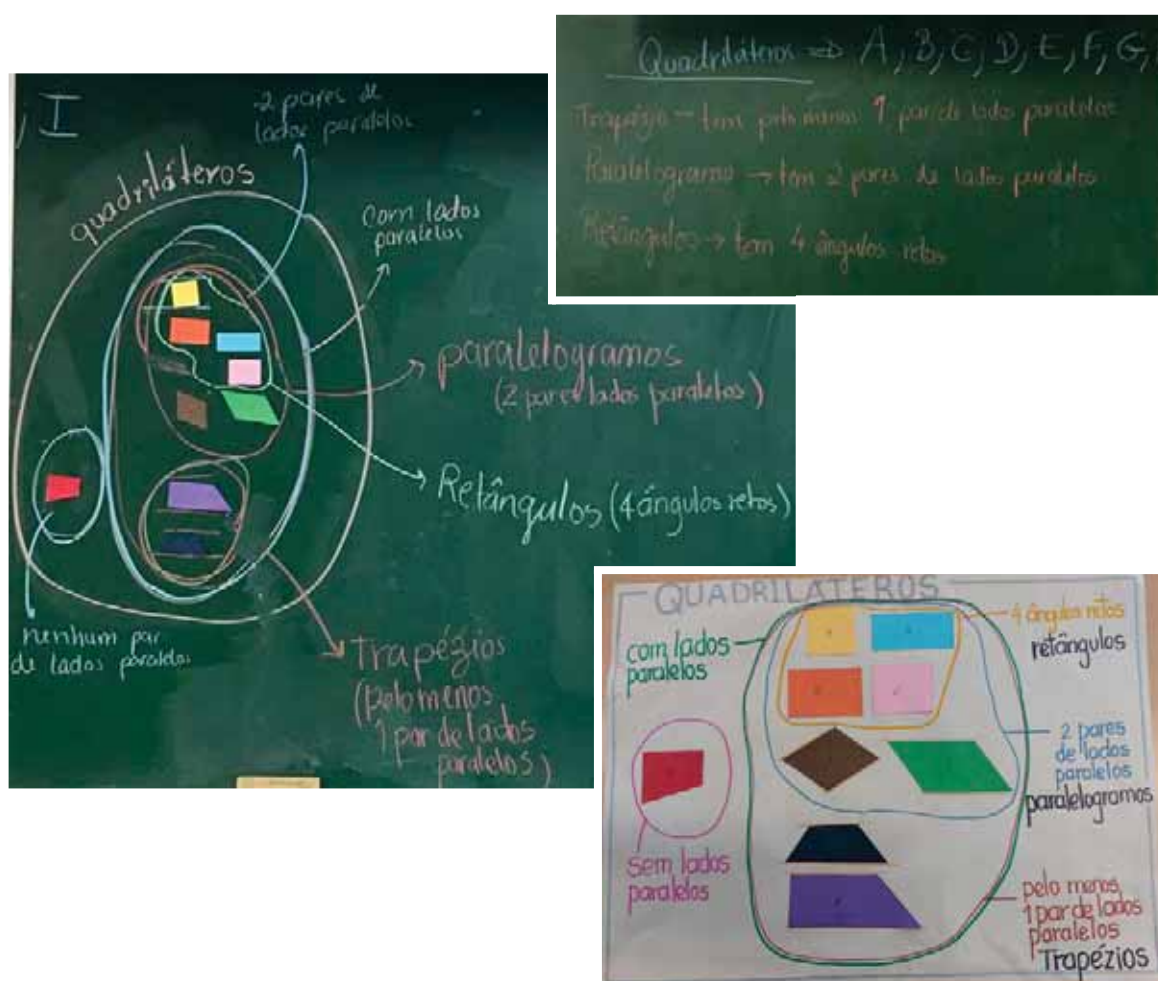 , I
2 pares de
lados paralelos
quadriláteros
com lados
paralelos
paralelogramos
(2 pares lados paralelos)
Retângulos (4 ângulos retos)
nenhum par
de lados paralelos
Trapézios
(pelo menos
1 par de lados
paralelos)
Quadriláteros ⇒ A, B, C, D, E, F, G,
Trapézio – tem pelo menos 1 par de lados paralelos
Paralelogramo → tem 2 pares de lados paralelos
Retângulos → tem 4 ângulos retos
QUADRILÁTEROS
com lados
paralelos
4 ângulos retos
retângulos
2 pares
de lados
paralelos
paralelogramos
Sem lados
paralelos
pelo menos
1 par de lados
paralelos
Trapézios